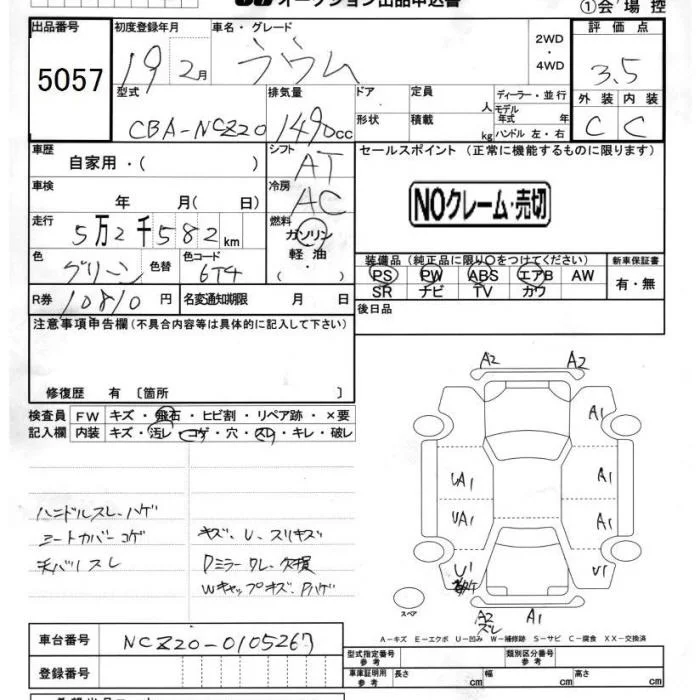 オークション出品申込書
①会場控
出品番号 初度登録年月 車名・グレード 2WD ・ 4WD 評価点
5057 19 2月 ラウム 3.5
型式 排気量 ドア 定員 人 ディーラー・並行 外装 内装
CBA-NCZ20 1490cc 形状 積載 kg モデル年式 年 ハンドル 左・右 C C
車歴 自家用・( ) シフト AT セールスポイント (正常に機能するものに限ります)
車検 年 月( 日) 冷房 AC NOクレーム・売切
走行 5万2千582km 燃料 ガソリン 軽油 ・( )
色 グリーン 色替 色コード 6T4 装備品(純正品に限り○をつけてください) 新車保証書
PS PW ABS エアB AW 有・無
SR ナビ TV カワ
R券 10810円 名変通知期限 月 日 後日品
注意事項申告欄(不具合内容等は具体的に記入して下さい)
修復歴 有 〔箇所 〕
検査員 FW キズ・飛石・ヒビ割・リペア跡・×要
記入欄 内装 キズ・汚レ・コゲ・穴・スレ・キレ・破レ
A2 A2
A1
UA1 A1
UA1 A1
U1 U1
A2 スレ A1
ハンドルスレ、ハゲ
シートカバーコゲ キズ、U、スリキズ
天バリスレ Dミラーワレ、欠損
Wキャップキズ、Pハゲ
スペア
A-キズ E-エクボ U-凹み W-補修跡 S-サビ C-腐食 XX-交換済
車台番号 NCZ20-0105267
型式指定番号 参考 類別区分番号 参考
登録番号 車庫証明用 参考 長さ cm 幅 cm 高さ cm